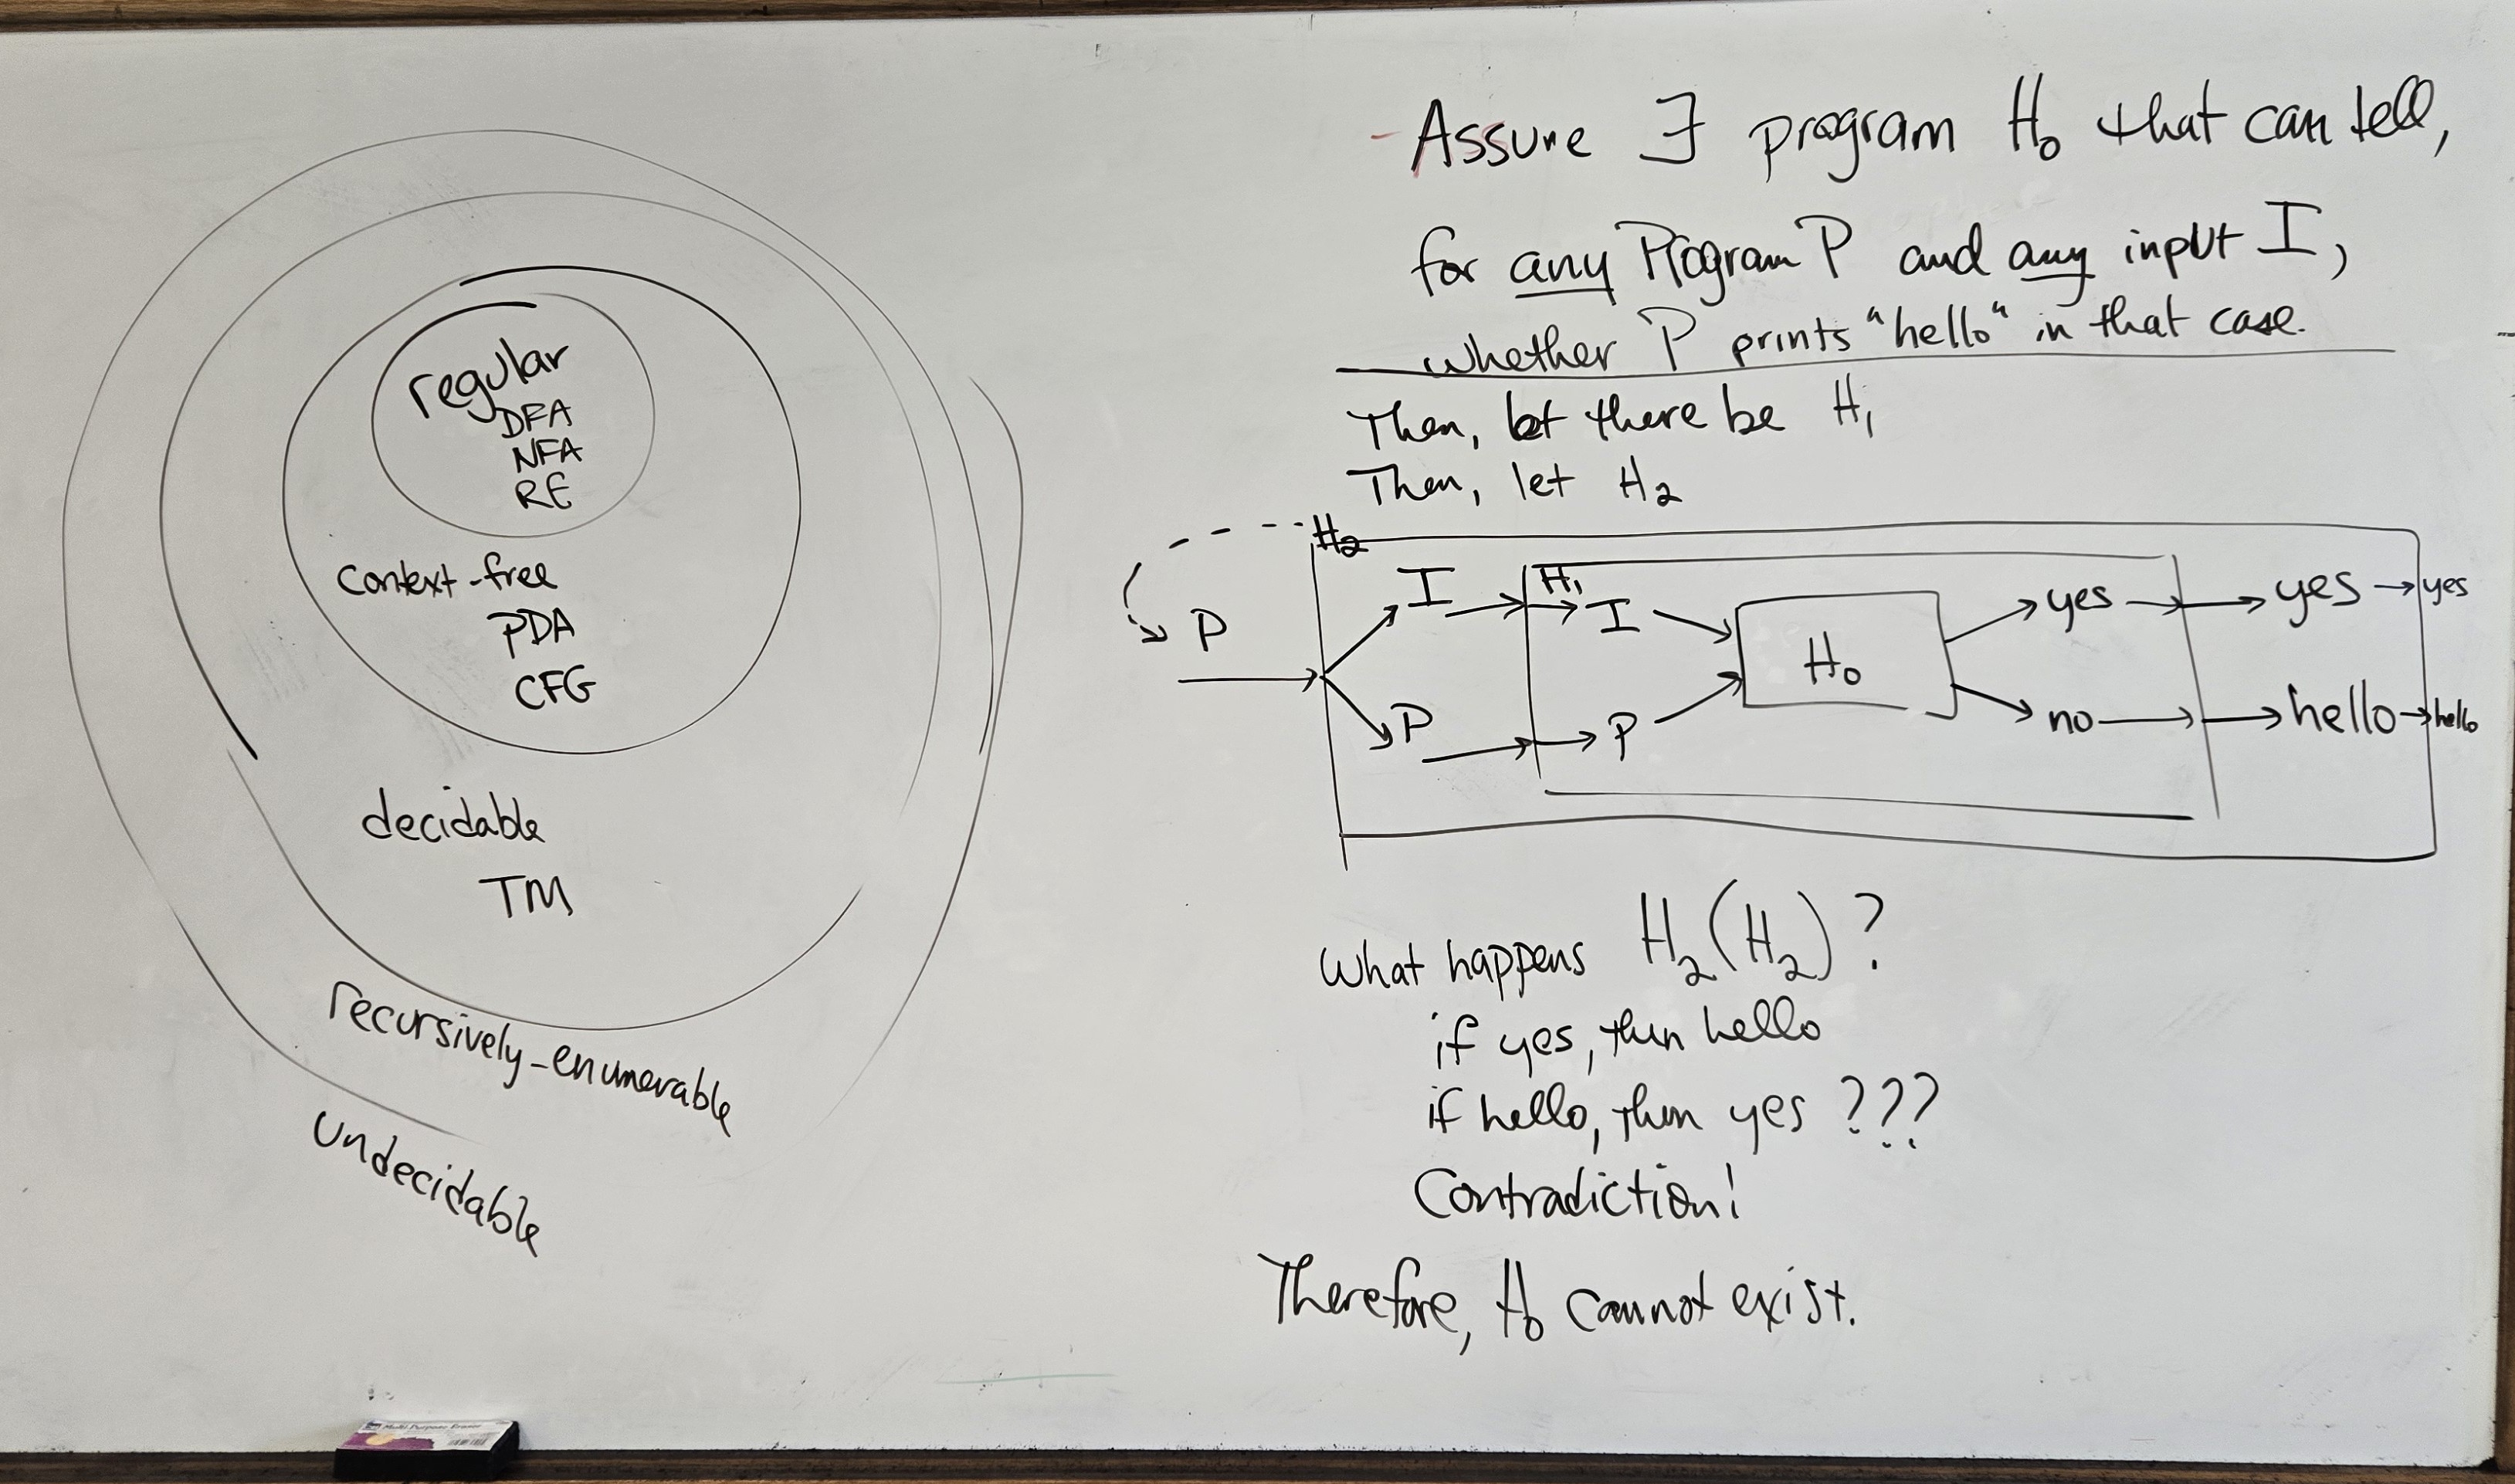 regular
DFA
NFA
RE
Context-free
PDA
CFG
decidable
TM
recursively-enumerable
undecidable
- Assume ∃ program H₀ that can tell,
for any Program P and any input I,
whether P prints "hello" in that case.
Then, let there be H₁
Then, let H₂
H₂
P
I
P
H₁
I
P
H₀
yes
no
yes
hello
yes
hello
What happens H₂(H₂)?
if yes, then hello
if hello, then yes ???
Contradiction!
Therefore, H₀ cannot exist.
Multi-Purpose Eraser